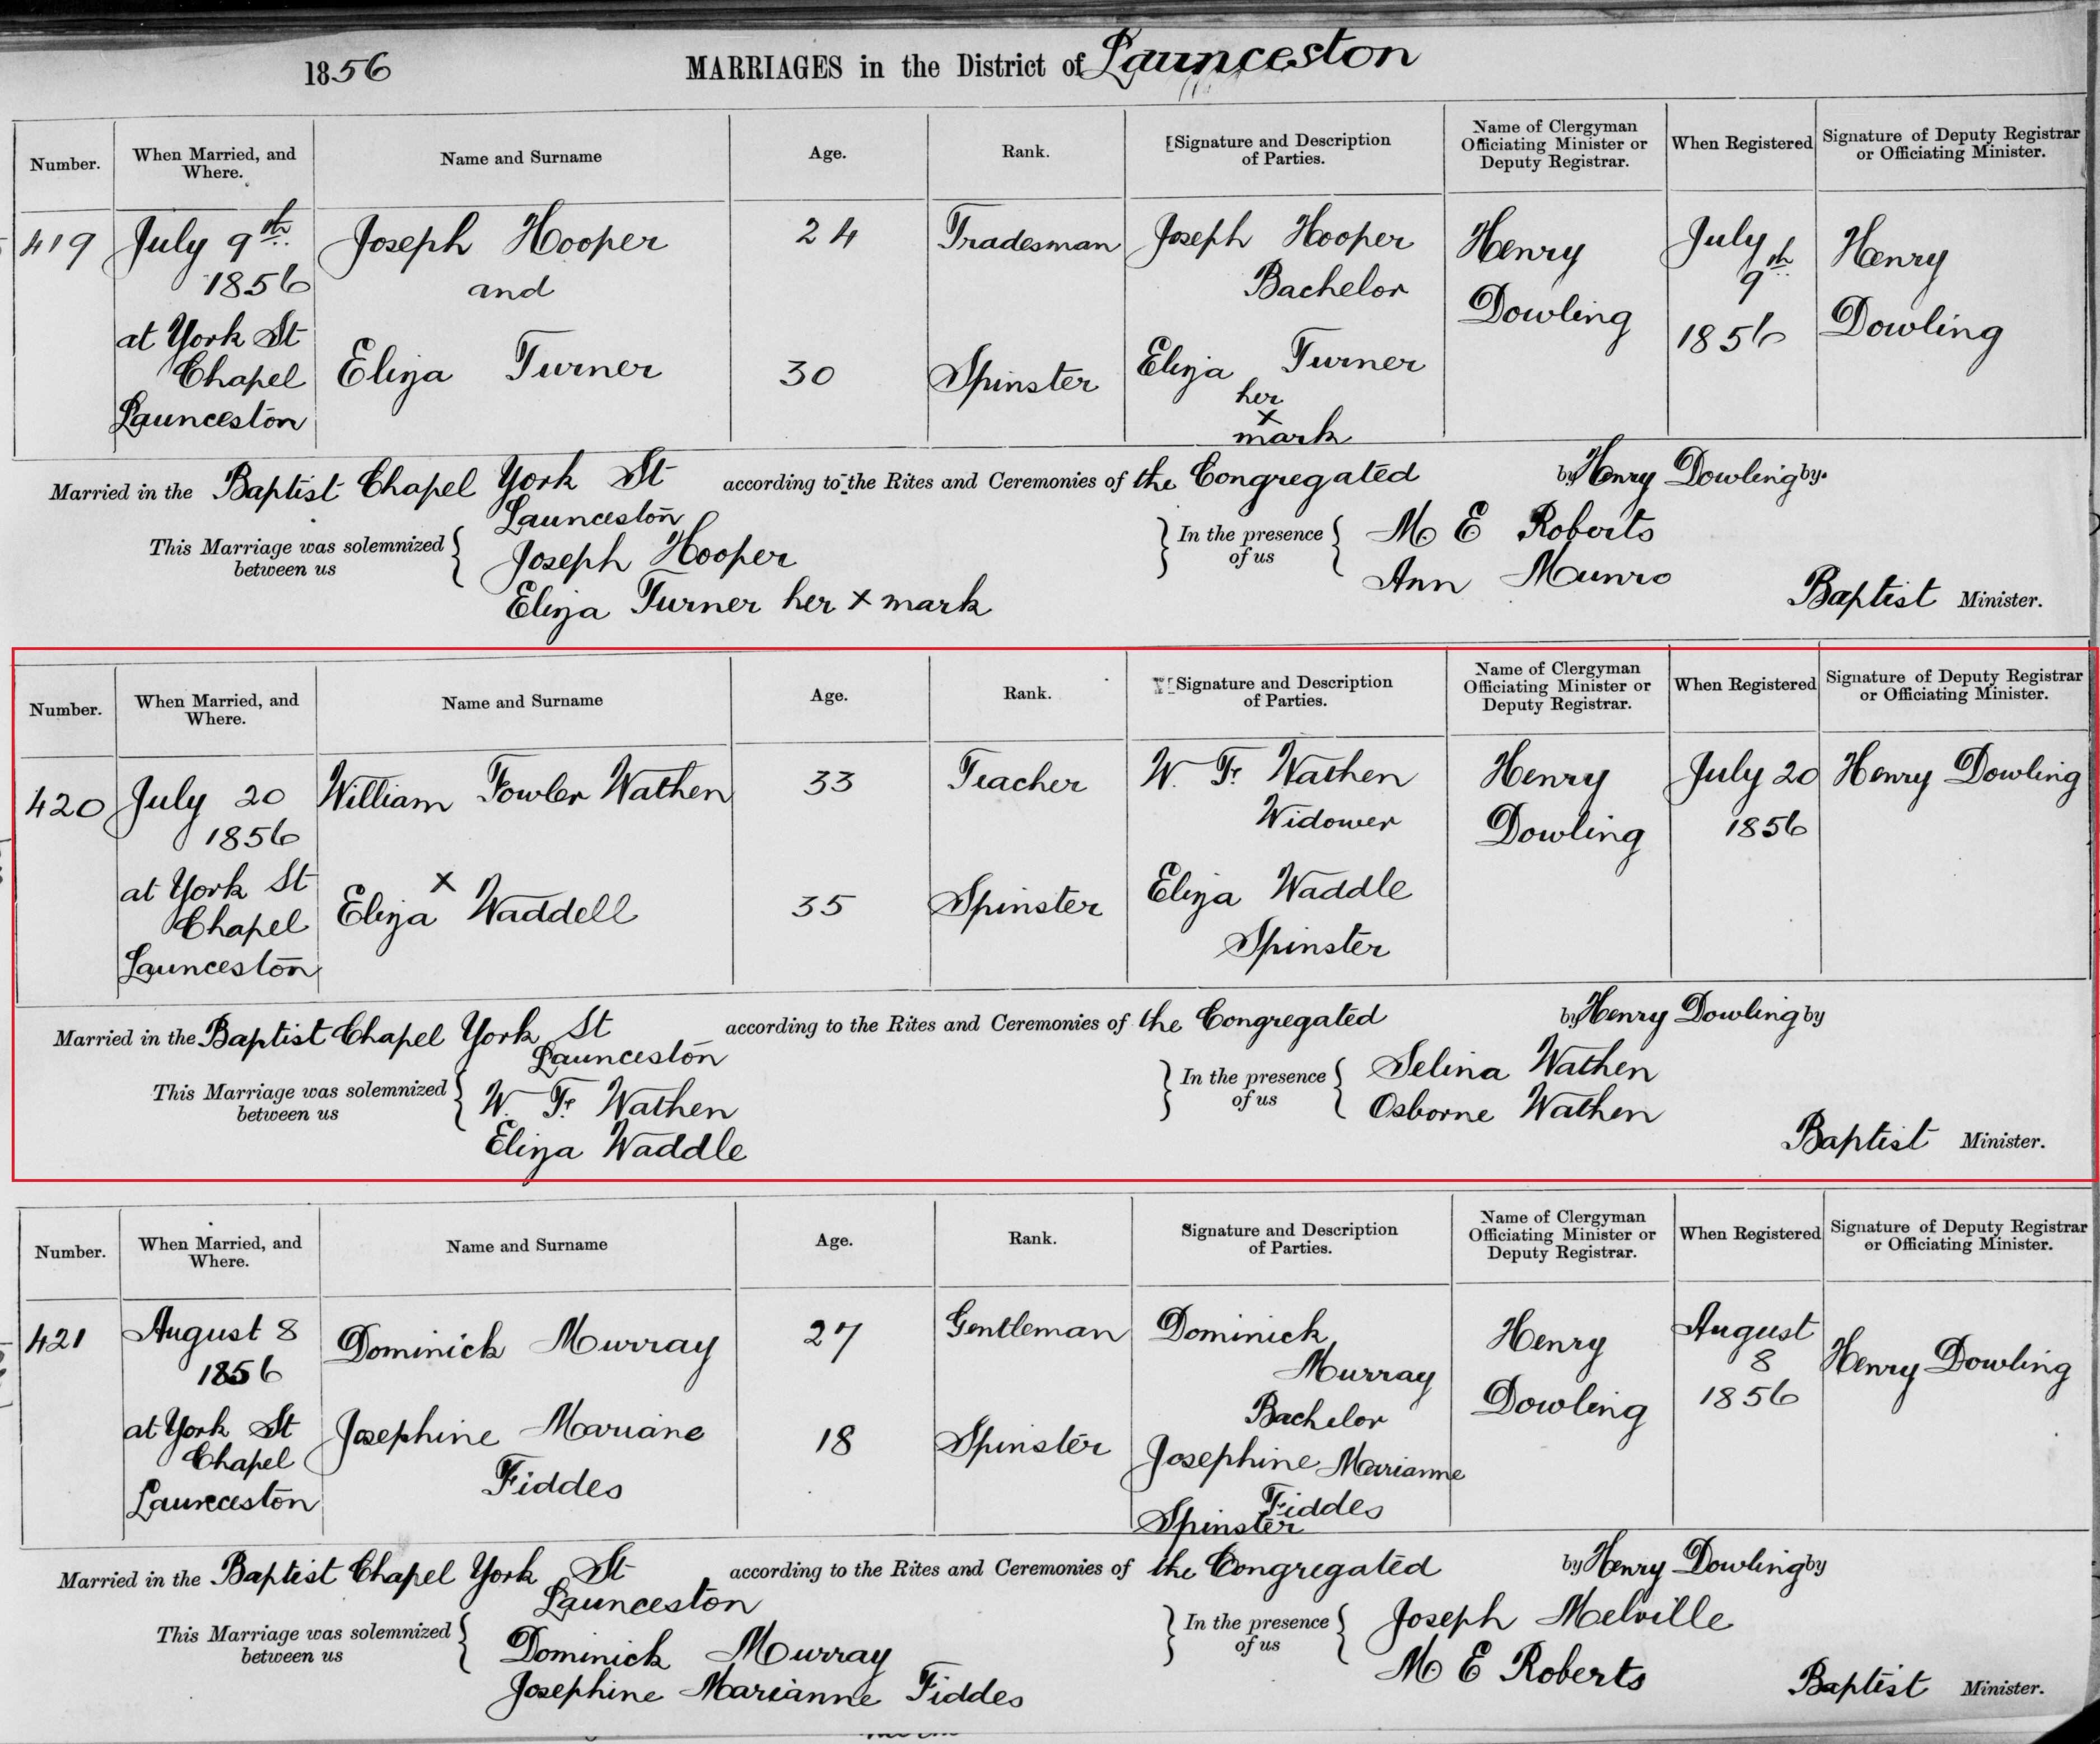 1856 MARRIAGES in the District of Launceston
Number. When Married, and Where. Name and Surname Age. Rank. Signature and Description of Parties. Name of Clergyman Officiating Minister or Deputy Registrar. When Registered Signature of Deputy Registrar or Officiating Minister.
419 July 9th. Joseph Hooper 24 Tradesman Joseph Hooper Henry July Henry
1856 and Bachelor Dowling 9th. Dowling
at York St Eliza Turner 30 Spinster Eliza Turner 1856
Chapel her
Launceston x
mark
Married in the Baptist Chapel York St according to the Rites and Ceremonies of the Congregated by Henry Dowling by.
Launceston
This Marriage was solemnized between us { Joseph Hooper } In the presence of us { M. E Roberts
Ann Munro
Eliza Turner her x mark Baptist Minister.
Number. When Married, and Where. Name and Surname Age. Rank. Signature and Description of Parties. Name of Clergyman Officiating Minister or Deputy Registrar. When Registered Signature of Deputy Registrar or Officiating Minister.
420 July 20 William Fowler Wathen 33 Teacher W. F. Wathen Henry July 20 Henry Dowling
1856 Widower Dowling 1856
at York St x
Chapel Eliza Waddell 35 Spinster Eliza Waddle
Launceston Spinster
Married in the Baptist Chapel York St according to the Rites and Ceremonies of the Congregated by Henry Dowling by
Launceston
This Marriage was solemnized between us { W. F. Wathen } In the presence of us { Selina Wathen
Osborne Wathen
Eliza Waddle Baptist Minister.
Number. When Married, and Where. Name and Surname Age. Rank. Signature and Description of Parties. Name of Clergyman Officiating Minister or Deputy Registrar. When Registered Signature of Deputy Registrar or Officiating Minister.
421 August 8 Dominick Murray 27 Gentleman Dominick Henry August Henry Dowling
1856 Murray 8
Bachelor Dowling 1856
at York St Josephine Mariane 18 Spinster Josephine Marianne
Chapel Fiddes Fiddes
Launceston Spinster
Married in the Baptist Chapel York St according to the Rites and Ceremonies of the Congregated by Henry Dowling by
Launceston
This Marriage was solemnized between us { Dominick Murray } In the presence of us { Joseph Melville
M. E Roberts
Josephine Marianne Fiddes Baptist Minister.